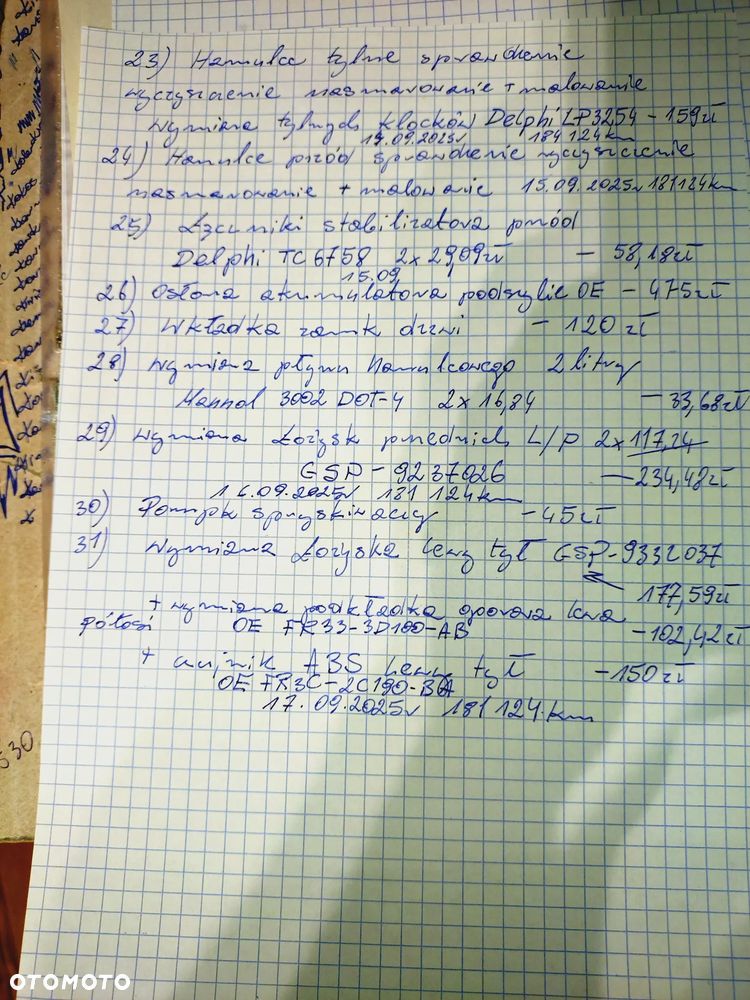 23) Hamulce tylne sprawdzenie
wyczyszczenie nasmarowanie + malowanie
wymiana tylnych klocków Delphi LP3254 - 159zł
15.09.2025r 181 124km
24) Hamulce przód sprawdzenie wyczyszczenie
nasmarowanie + malowanie 15.09.2025r 181124km
25) Łączniki stabilizatora przód
Delphi TC6758 2x2909zł - 58,18zł
15.09
26) Osłona akumulatora podszybie OE - 475zł
27) Wkładka zamk drzwi - 120zł
28) Wymiana płynu hamulcowego 2 litry
Mannol 3002 DOT-4 2x16,84 - 33,68zł
29) Wymiana Łożysk przednich L/P 2x117,24
GSP - 9237026 - 234,48zł
16.09.2025r 181 124km
30) Pompk spryskiwaczy - 45zł
31) Wymiana Łożyska lewy tył GSP-9332037
177,59zł
+ wymiana podkładka oporowa lewa
półosi OE FR33-3D180-AB - 102,42zł
+ czujnik ABS lewy tył - 150zł
OE FR3C-2C190-BA
17.09.2025r 181 124km
530
OTOMOTO